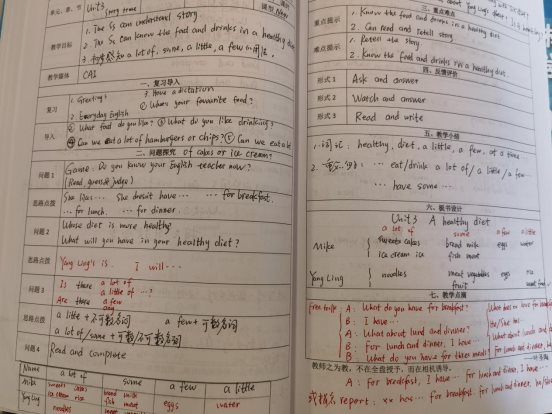 单元、章、节 Unit 3 story time 课型 New
教学目标
1. The Ss can understand story.
2. The Ss can know the food and drinks in a healthy diet
a lot of, some, a little, a few
教学媒体 CAI
一、复习导入
复习
1. Greetings 3. Have a dictation
2. Everyday English ① What's your favourite food?
导入
② What food do you like? ③ What do you like drinking?
④ Can we eat a lot of hamburgers or chips? ⑤ Can we eat a lot
of cakes or ice cream?
二、问题探究
问题1
Game: Do you know your English teacher now?
(Read, guess & judge)
思路点拨
She likes... She doesn't have... ... for breakfast.
... for lunch. ... for dinner.
问题2
Whose diet is more healthy?
What will you have in your healthy diet?
思路点拨
Yang Ling's is. I will ...
问题3
Is there a lot of
a little of ...?
Are there a few
思路点拨
a little + 不可数名词 a few + 可数名词
a lot of/some + 可数/不可数名词
问题4 Read and complete
Name a lot of some a few a little
Mike sweets cakes bread milk
ice cream fish meat eggs water
noodles
三、重点难点
重点提示
1. Know the food and drinks in a healthy diet.
2. Can read and retell story.
难点提示
1. Retell the story.
2. Know the food and drinks in a healthy diet.
四、反馈评价
形式1 Ask and answer
形式2 Watch and answer
形式3 Read and write
五、教学小结
1. 词汇: healthy, diet, a little, a few, at a time
2. ... eat/drink a lot of / a little / a few ...
... have some ...
六、板书设计
Unit 3 A healthy diet
a lot of some a few a little
Mike sweets cakes bread milk eggs water
ice cream fish meat
Yang Ling noodles meat vegetables eggs rice
fruit
七、教学点滴
Free talk A: What do you have for breakfast?
B: I have...
A: What about lunch and dinner?
B: For lunch and dinner, I have...
B: What do you have for three meals?
教师之为教，不在全盘授予，而在相机诱导。
A: For breakfast, I have... for lunch and dinner, I have...
report: xx has... for breakfast. for lunch and dinner, he/she